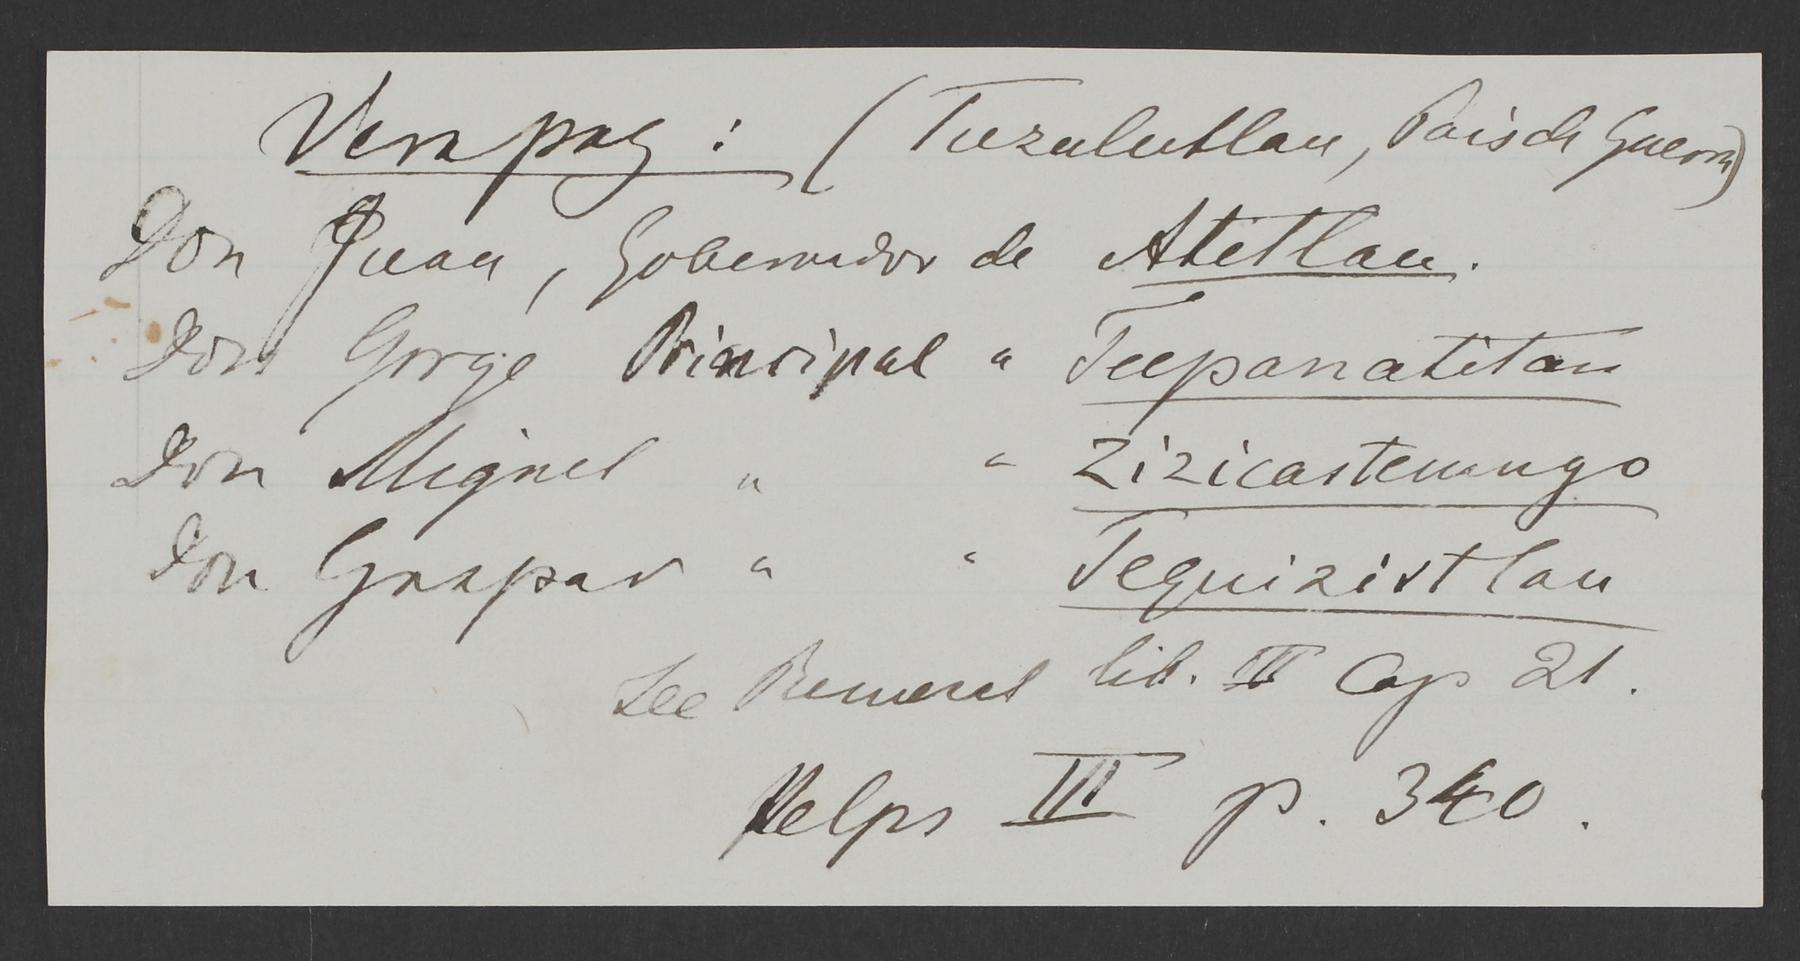 Verapaz: (Tuzulutlan, Pais de Guerra)
Don Juan, Gobernador de Atitlan.
Don Gorge Principal " Tecpanatitan
Don Miguel " " Zizicastenango
Don Gaspar " " Tequizistlan
See Remesal lib. III Cap 21.
Helps III p. 340.